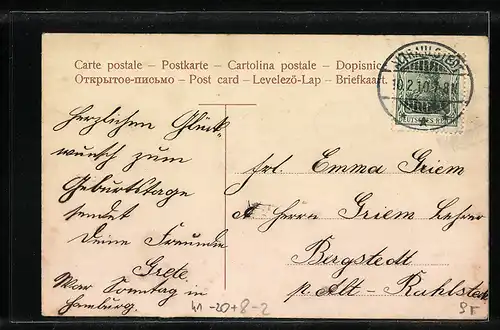 Carte postale – Postkarte – Cartolina postale – Dopisnice
Открытое-письмо – Post card – Levelező-Lap – Briefkaart.
10.2.10.7-8N
DEUTSCHES REICH
Herzlichen Glück-
wunsch zum
Geburtstage
sendet
Deine Freundin
Grete.
War Sonntag in
Hamburg.
Frl. Emma Griem
Herrn Griem Lehrer
Bergstedt
p. Alt-Rahlstedt
41-20+8-2